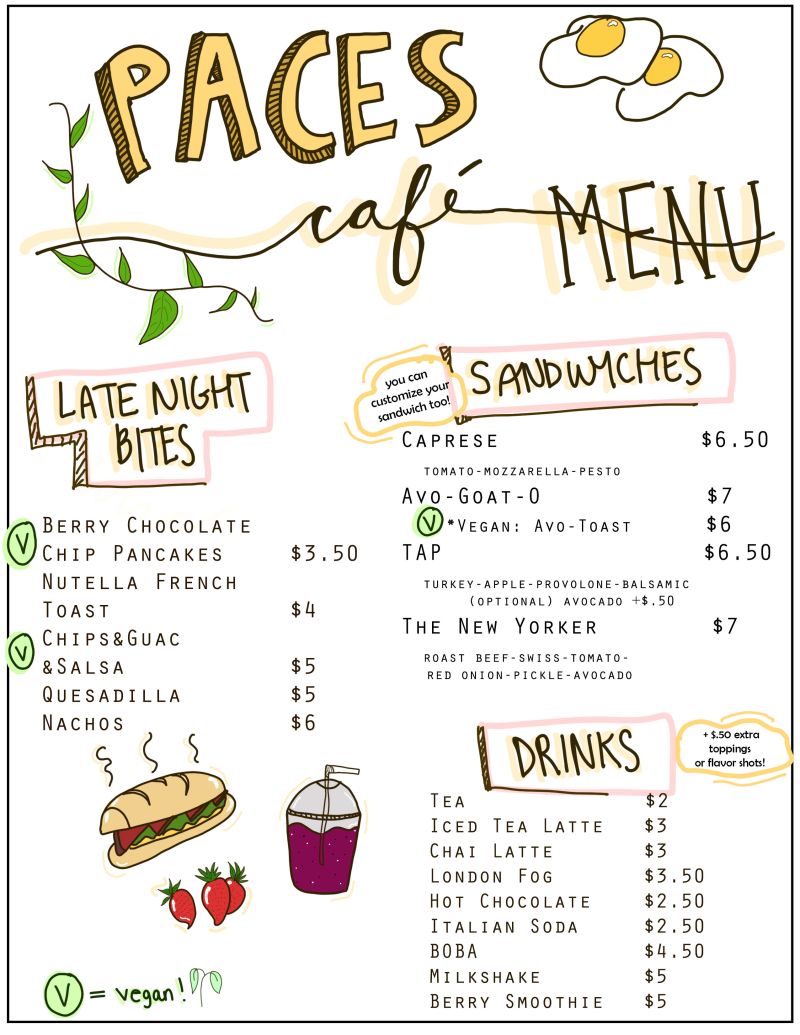 PACES
café MENU
LATE NIGHT
BITES
V BERRY CHOCOLATE
CHIP PANCAKES $3.50
NUTELLA FRENCH
TOAST $4
V CHIPS&GUAC
&SALSA $5
QUESADILLA $5
NACHOS $6
V = vegan!
you can
customize your
sandwich too!
SANDWICHES
CAPRESE $6.50
TOMATO-MOZZARELLA-PESTO
AVO-GOAT-O $7
V *VEGAN: AVO-TOAST $6
TAP $6.50
TURKEY-APPLE-PROVOLONE-BALSAMIC
(OPTIONAL) AVOCADO +$.50
THE NEW YORKER $7
ROAST BEEF-SWISS-TOMATO-
RED ONION-PICKLE-AVOCADO
DRINKS
+ $.50 extra
toppings
or flavor shots!
TEA $2
ICED TEA LATTE $3
CHAI LATTE $3
LONDON FOG $3.50
HOT CHOCOLATE $2.50
ITALIAN SODA $2.50
BOBA $4.50
MILKSHAKE $5
BERRY SMOOTHIE $5